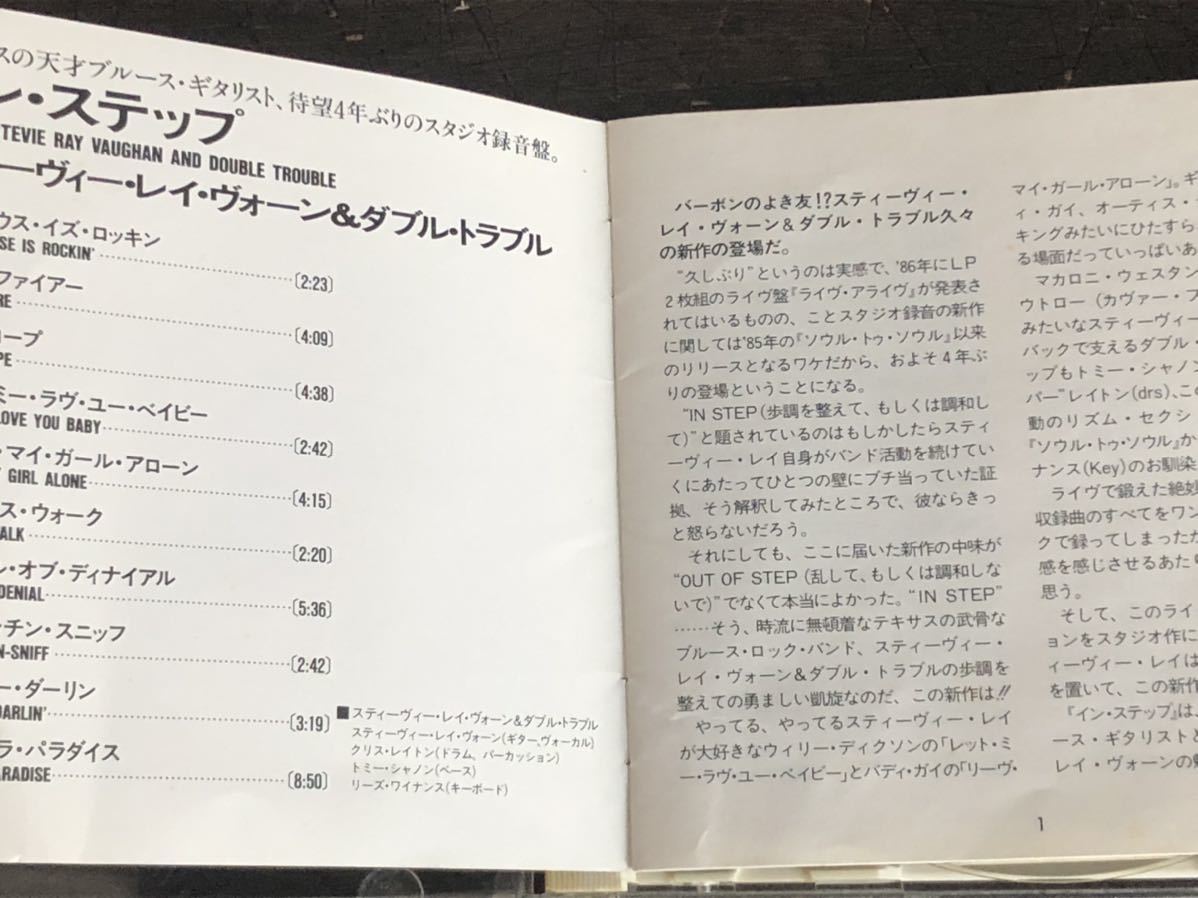 スの天才ブルース・ギタリスト、待望4年ぶりのスタジオ録音盤。
ン・ステップ
TEVIE RAY VAUGHAN AND DOUBLE TROUBLE
ーヴィー・レイ・ヴォーン&ダブル・トラブル
ウス・イズ・ロッキン
SE IS ROCKIN'……〔2:23〕
ファイアー
RE……〔4:09〕
ロープ
PE……〔4:38〕
ミー・ラヴ・ユー・ベイビー
LOVE YOU BABY……〔2:42〕
・マイ・ガール・アローン
Y GIRL ALONE……〔4:15〕
ス・ウォーク
ALK……〔2:20〕
ン・オブ・ディナイアル
DENIAL……〔5:36〕
ッチン・スニッフ
N-SNIFF……〔2:42〕
ー・ダーリン
DARLIN'……〔3:19〕
ラ・パラダイス
ARADISE……〔8:50〕
■スティーヴィー・レイ・ヴォーン&ダブル・トラブル
スティーヴィー・レイ・ヴォーン(ギター、ヴォーカル)
クリス・レイトン(ドラム、パーカッション)
トミー・シャノン(ベース)
リーズ・ワイナンス(キーボード)
バーボンのよき友!?スティーヴィー・
レイ・ヴォーン&ダブル・トラブル久々
の新作の登場だ。
“久しぶり”というのは実感で、'86年にLP
2枚組のライヴ盤『ライヴ・アライヴ』が発表さ
れてはいるものの、ことスタジオ録音の新作
に関しては'85年の『ソウル・トゥ・ソウル』以来
のリリースとなるワケだから、およそ4年ぶ
りの登場ということになる。
“IN STEP(歩調を整えて、もしくは調和し
て)”と題されているのはもしかしたらスティ
ーヴィー・レイ自身がバンド活動を続けてい
くにあたってひとつの壁にブチ当っていた証
拠、そう解釈してみたところで、彼ならきっ
と怒らないだろう。
それにしても、ここに届いた新作の中味が
“OUT OF STEP(乱して、もしくは調和しな
いで)”でなくて本当によかった。“IN STEP”
……そう、時流に無頓着なテキサスの武骨な
ブルース・ロック・バンド、スティーヴィー・
レイ・ヴォーン&ダブル・トラブルの歩調を
整えての勇ましい凱旋なのだ、この新作は!!
やってる、やってるスティーヴィー・レイ
が大好きなウィリー・ディクソンの「レット・ミ
ー・ラヴ・ユー・ベイビー」とバディ・ガイの「リーヴ・
マイ・ガール・アローン」。ギ
ィ・ガイ、オーティス・
キングみたいにひたすら
る場面だっていっぱいあ
マカロニ・ウェスタン
ウトロー(カヴァー・フ
みたいなスティーヴィー
バックで支えるダブル・
ップもトミー・シャノン
パー”レイトン(drs)、こ
動のリズム・セクシ
『ソウル・トゥ・ソウル』か
ナンス(Key)のお馴染
ライヴで鍛えた絶妙
収録曲のすべてをワン
クで録ってしまったか
感を感じさせるあたり
思う。
そして、このライ
ョンをスタジオ作に
ィーヴィー・レイは
を置いて、この新作
『イン・ステップ』は、
ース・ギタリストと
レイ・ヴォーンの
1